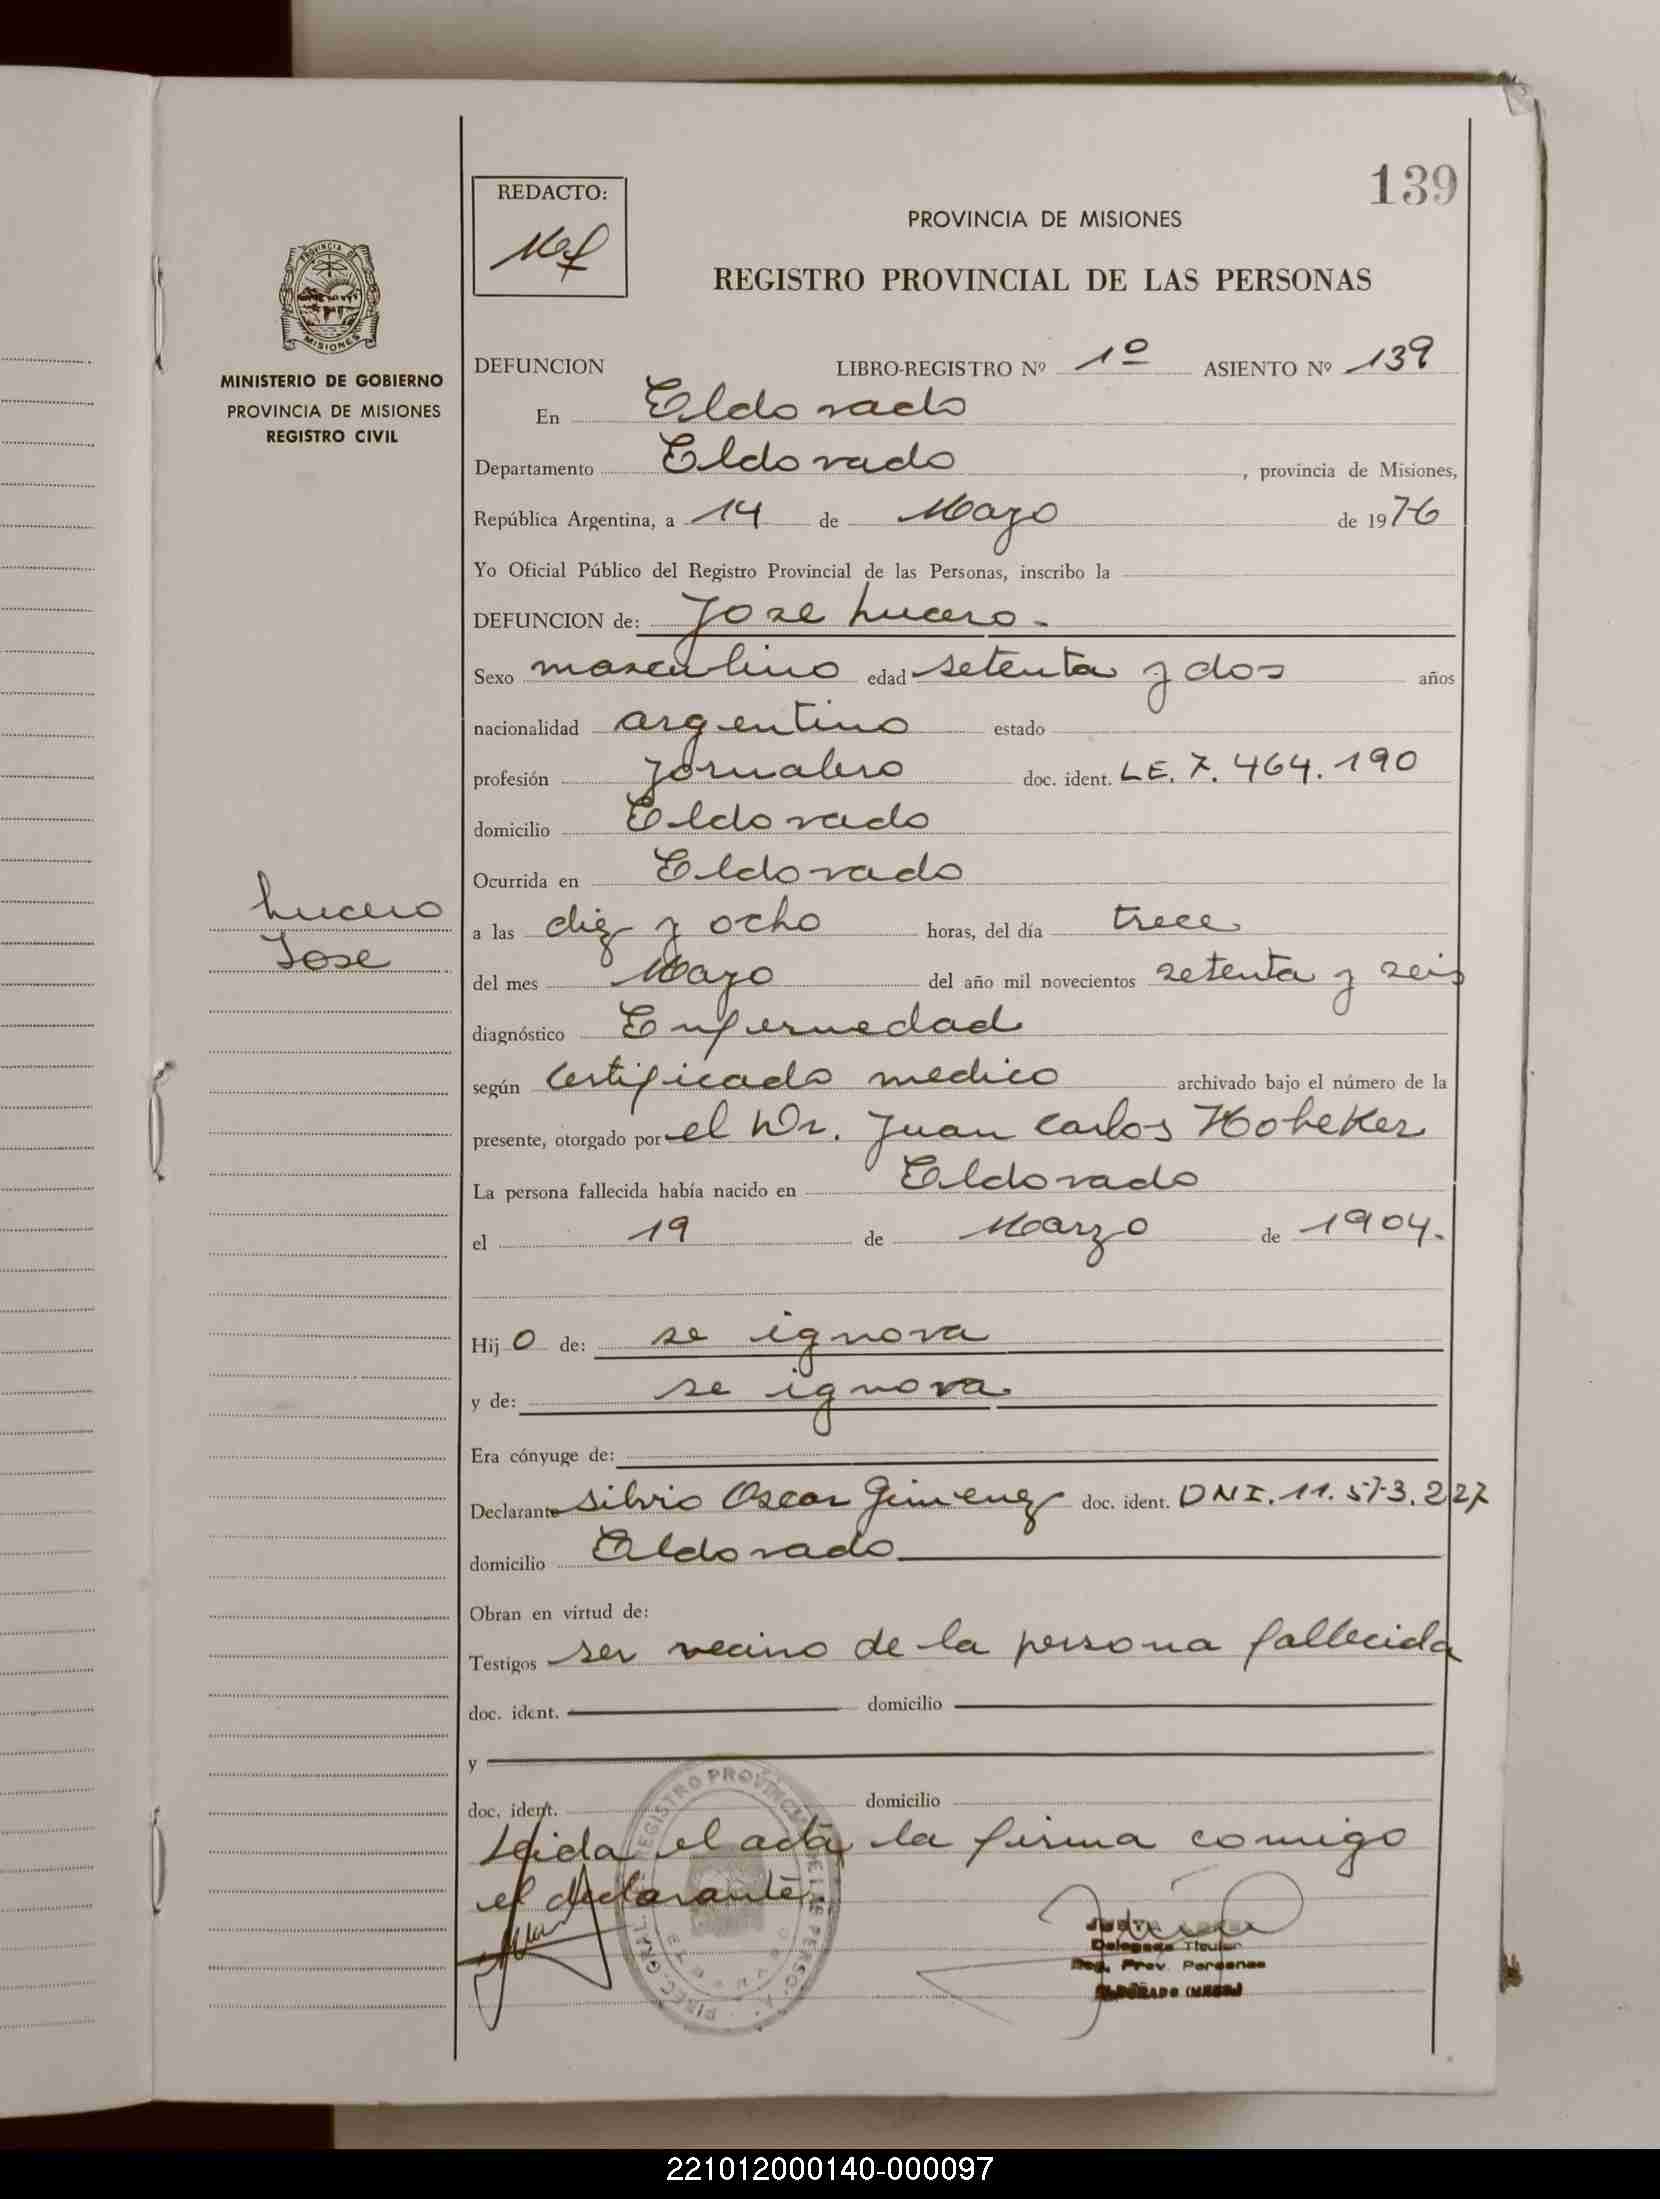 139
REDACTO:
PROVINCIA DE MISIONES
REGISTRO PROVINCIAL DE LAS PERSONAS
PROVINCIA DE
MISIONES
MINISTERIO DE GOBIERNO
PROVINCIA DE MISIONES
REGISTRO CIVIL
Lucero
Jose
DEFUNCION LIBRO-REGISTRO Nº 1º ASIENTO Nº 139
En Eldorado
Departamento Eldorado, provincia de Misiones,
República Argentina, a 14 de Mayo de 1976
Yo Oficial Público del Registro Provincial de las Personas, inscribo la
DEFUNCION de: Jose Lucero.
Sexo masculino edad setenta y dos años
nacionalidad argentino estado
profesión jornalero doc. ident. LE. 7.464.190
domicilio Eldorado
Ocurrida en Eldorado
a las diez y ocho horas, del día trece
del mes Mayo del año mil novecientos setenta y seis
diagnóstico Enfermedad
según Certificado medico archivado bajo el número de la
presente, otorgado por el Dr. Juan Carlos Hobeker
La persona fallecida había nacido en Eldorado
el 19 de Marzo de 1904.
Hijo de: se ignora
y de: se ignora
Era cónyuge de:
Declarante Silvio Oscar Gimenez doc. ident. DNI. 11.573.227
domicilio Eldorado
Obran en virtud de:
Testigos ser vecino de la persona fallecida
doc. ident. domicilio
y
doc. ident. domicilio
Leida el acta la firma comigo
el declarante.
REGISTRO PROVINCIAL DE LAS PERSONAS
DIREC. GRAL.
Delegada Titular
Reg. Prov. Personas
ELDORADO (MNES)
221012000140-000097